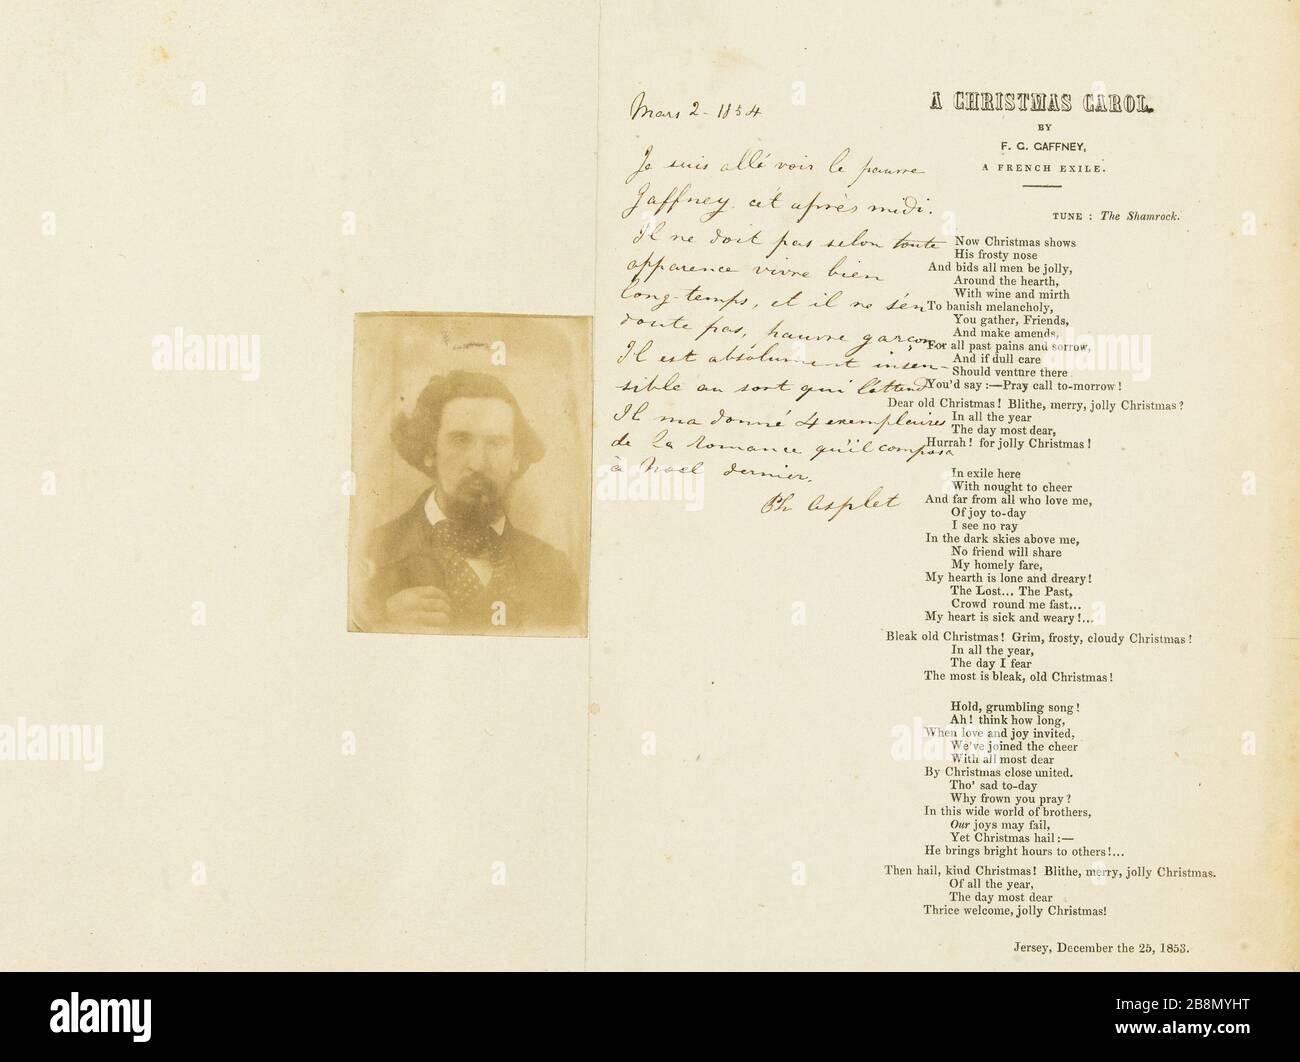 Mars 2 - 1854
Je suis allé voir le pauvre
Gaffney cet après midi.
Il ne doit pas selon toute
apparence vivre bien
long-temps, et il ne s'en
doute pas, pauvre garçon.
Il est absolument insen-
sible au sort qui l'attend
Il m'a donné 4 exemplaires
de la Romance qu'il composa
à Noel dernier.
Ph Asplet
A CHRISTMAS CAROL.
BY
F. G. GAFFNEY,
A FRENCH EXILE.
TUNE : The Shamrock.
Now Christmas shows
His frosty nose
And bids all men be jolly,
Around the hearth,
With wine and mirth
To banish melancholy,
You gather, Friends,
And make amends,
For all past pains and sorrow,
And if dull care
Should venture there
You'd say :—Pray call to-morrow !
Dear old Christmas ! Blithe, merry, jolly Christmas ?
In all the year
The day most dear,
Hurrah ! for jolly Christmas !
In exile here
With nought to cheer
And far from all who love me,
Of joy to-day
I see no ray
In the dark skies above me,
No friend will share
My homely fare,
My hearth is lone and dreary !
The Lost... The Past,
Crowd round me fast...
My heart is sick and weary !...
Bleak old Christmas ! Grim, frosty, cloudy Christmas !
In all the year,
The day I fear
The most is bleak, old Christmas !
Hold, grumbling song !
Ah ! think how long,
When love and joy invited,
We've joined the cheer
With all most dear
By Christmas close united.
Tho' sad to-day
Why frown you pray ?
In this wide world of brothers,
Our joys may fail,
Yet Christmas hail :—
He brings bright hours to others !...
Then hail, kind Christmas ! Blithe, merry, jolly Christmas.
Of all the year,
The day most dear
Thrice welcome, jolly Christmas!
Jersey, December the 25, 1853.
alamy
Image ID: 2B8MYHT
www.alamy.com